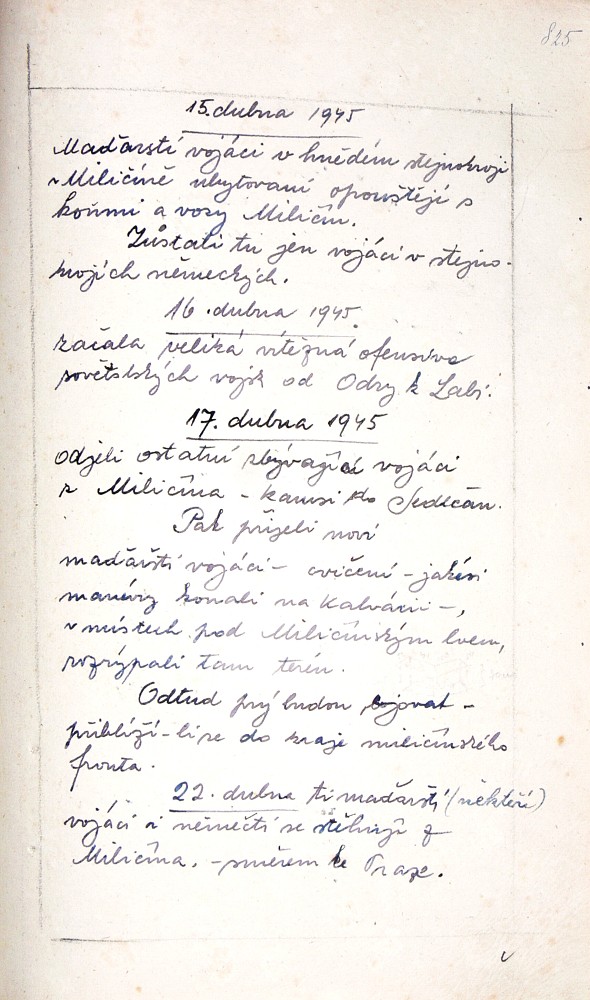 825
15. dubna 1945
Maďarští vojáci v hnědém stejnokroji
v Miličíně ubytovaní opouštějí s
koňmi a vozy Miličín.
Zůstali tu jen vojáci v stejno-
krojích německých.
16. dubna 1945
začala veliká vítězná ofensiva
sovětských vojsk od Odry k Labi.
17. dubna 1945
odjeli ostatní zbývající vojáci
z Miličína - kamsi do Sedlčan.
Pak přijeli noví
maďarští vojáci - cvičení - jakési
manévry konali na Kalvárii -,
v místech pod Miličínským lvem,
rozrýpali tam terén.
Odtud prý budou bojovat -
přiblíží-li se do kraje miličínského
fronta.
22. dubna ti maďarští (někteří)
vojáci i němečtí se stěhují z
Miličína, - směrem ku Praze.